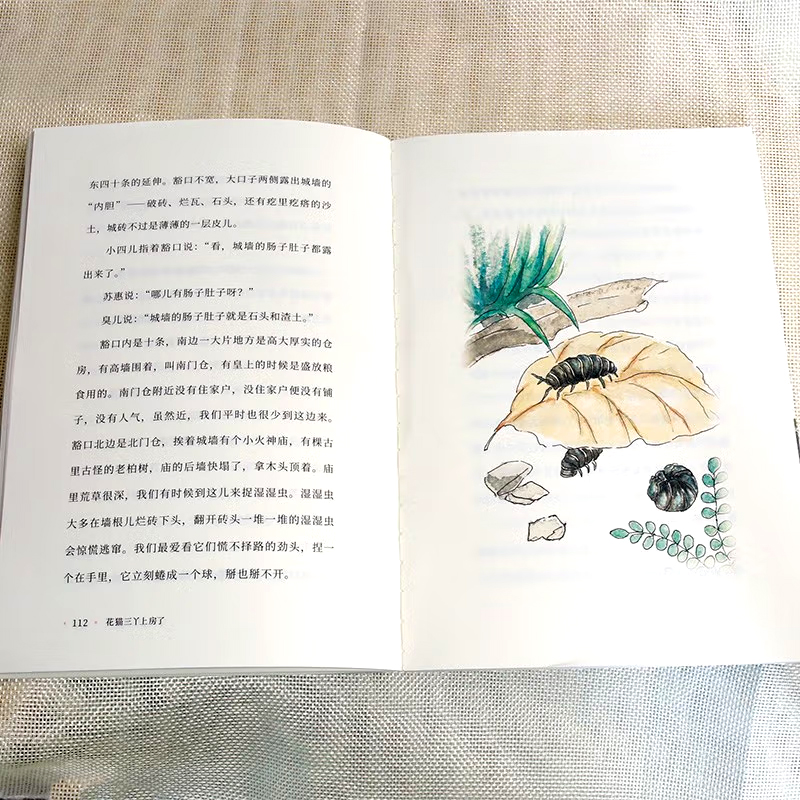 东四十条的延伸。豁口不宽，大口子两侧露出城墙的
“内胆”——破砖、烂瓦、石头，还有疙里疙瘩的沙
土，城砖不过是薄薄的一层皮儿。
小四儿指着豁口说：“看，城墙的肠子肚子都露
出来了。”
苏惠说：“哪儿有肠子肚子呀？”
臭儿说：“城墙的肠子肚子就是石头和渣土。”
豁口内是十条，南边一大片地方是高大厚实的仓
房，有高墙围着，叫南门仓，有皇上的时候是盛放粮
食用的。南门仓附近没有住家户，没住家户便没有铺
子，没有人气，虽然近，我们平时也很少到这边来。
豁口北边是北门仓，挨着城墙有个小火神庙，有棵古
里古怪的老柏树，庙的后墙快塌了，拿木头顶着。庙
里荒草很深，我们有时候到这儿来捉湿湿虫。湿湿虫
大多在墙根儿烂砖下头，翻开砖头一堆一堆的湿湿虫
会惊慌逃窜。我们最爱看它们慌不择路的劲头，捏一
个在手里，它立刻蜷成一个球，掰也掰不开。
112 花猫三丫上房了